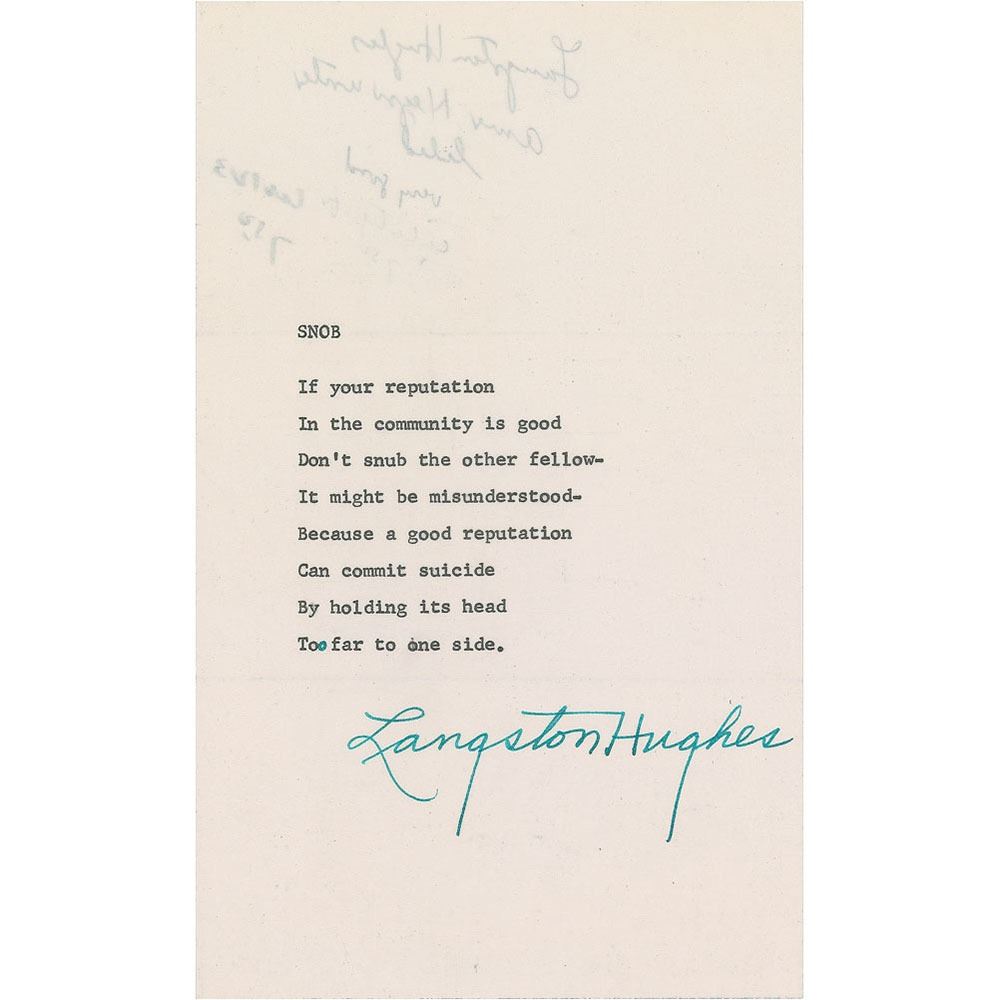 Langston Hughes
Amer Negro writer
very good
SNOB
If your reputation
In the community is good
Don't snub the other fellow-
It might be misunderstood-
Because a good reputation
Can commit suicide
By holding its head
Too far to one side.
Langston Hughes